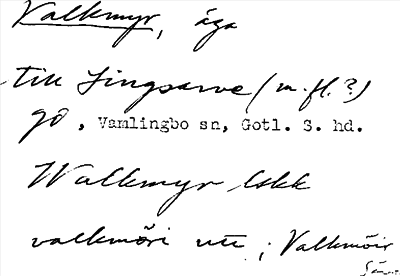 Valkmyr, äga
till Lingsarve (m.fl.?)
gd, Vamlingbo sn, Gotl. S. hd.
Walkmyr lskk
valkmöri utt ; Valkmöir